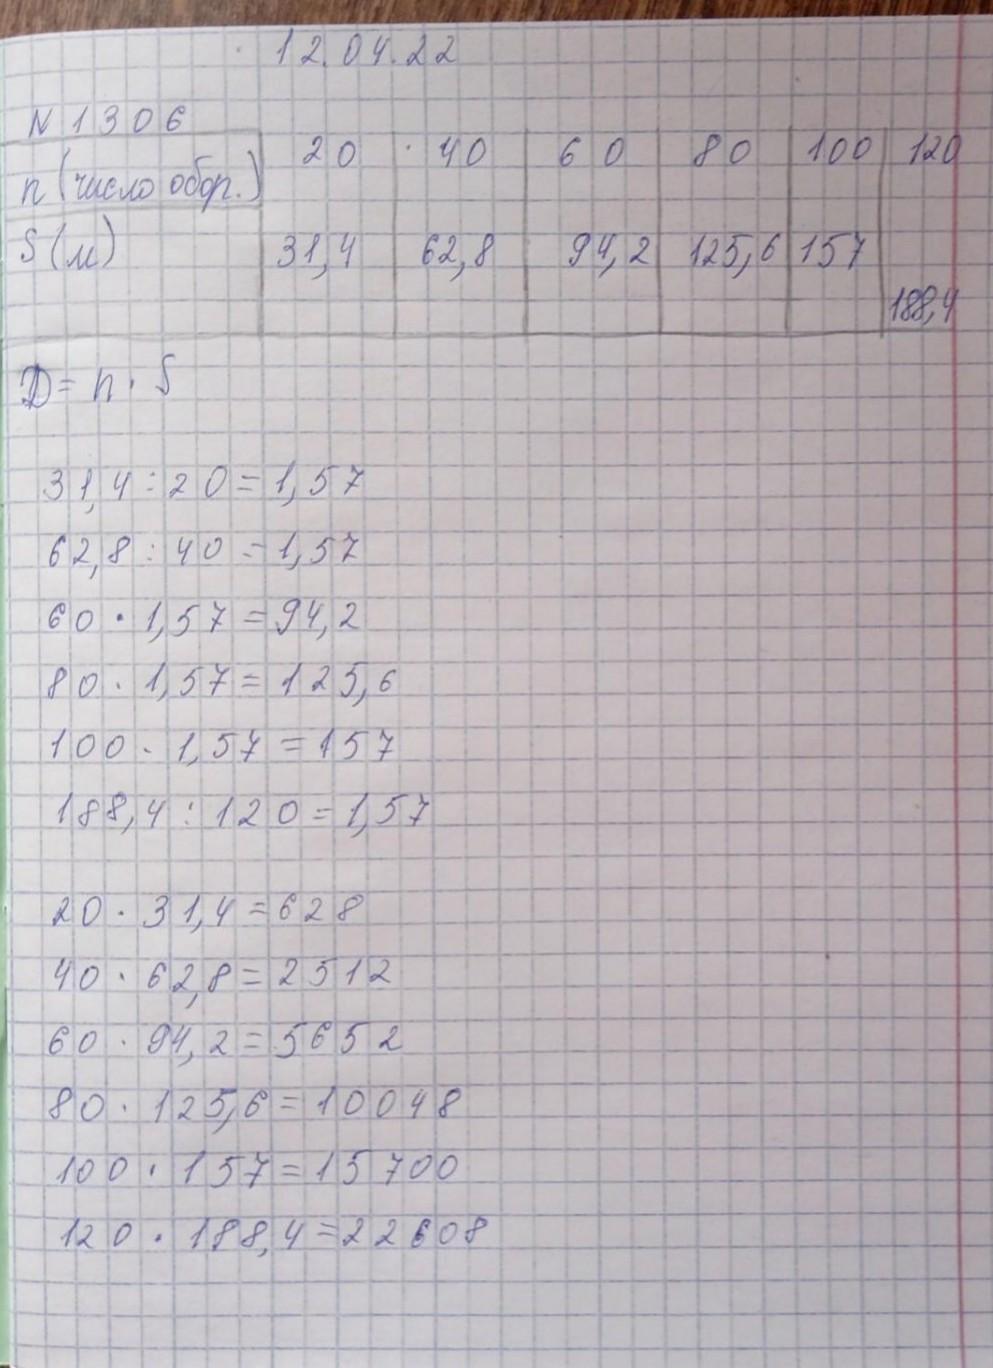 12.04.22
N 1306
n (число обор.) 20 40 60 80 100 120
S (м) 31,4 62,8 94,2 125,6 157 188,4
D = n · S
31,4 : 20 = 1,57
62,8 : 40 = 1,57
60 · 1,57 = 94,2
80 · 1,57 = 125,6
100 · 1,57 = 157
188,4 : 120 = 1,57
20 · 31,4 = 628
40 · 62,8 = 2512
60 · 94,2 = 5652
80 · 125,6 = 10048
100 · 157 = 15700
120 · 188,4 = 22608